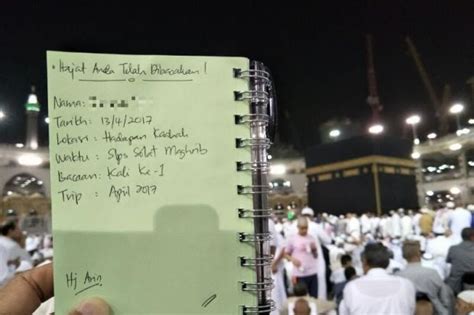 • Hajat Anda Telah Dibacakan !
Nama:
Tarikh: 13/4/2017
Lokasi: Hadapan Kaabah
Waktu: Slps Solat Maghrib
Bacaan: Kali Ke-1
Trip: April 2017
Hj Arin